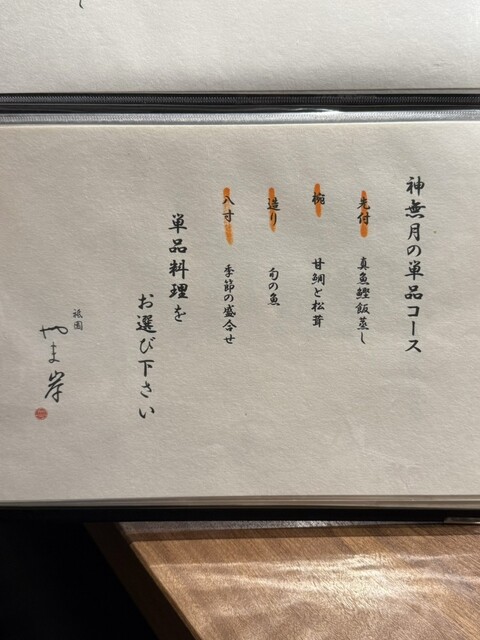 神無月の単品コース
先付 真魚鰹飯蒸し
椀 甘鯛と松茸
造り 旬の魚
八寸 季節の盛合せ
単品料理を
お選び下さい
祇園
やま岸